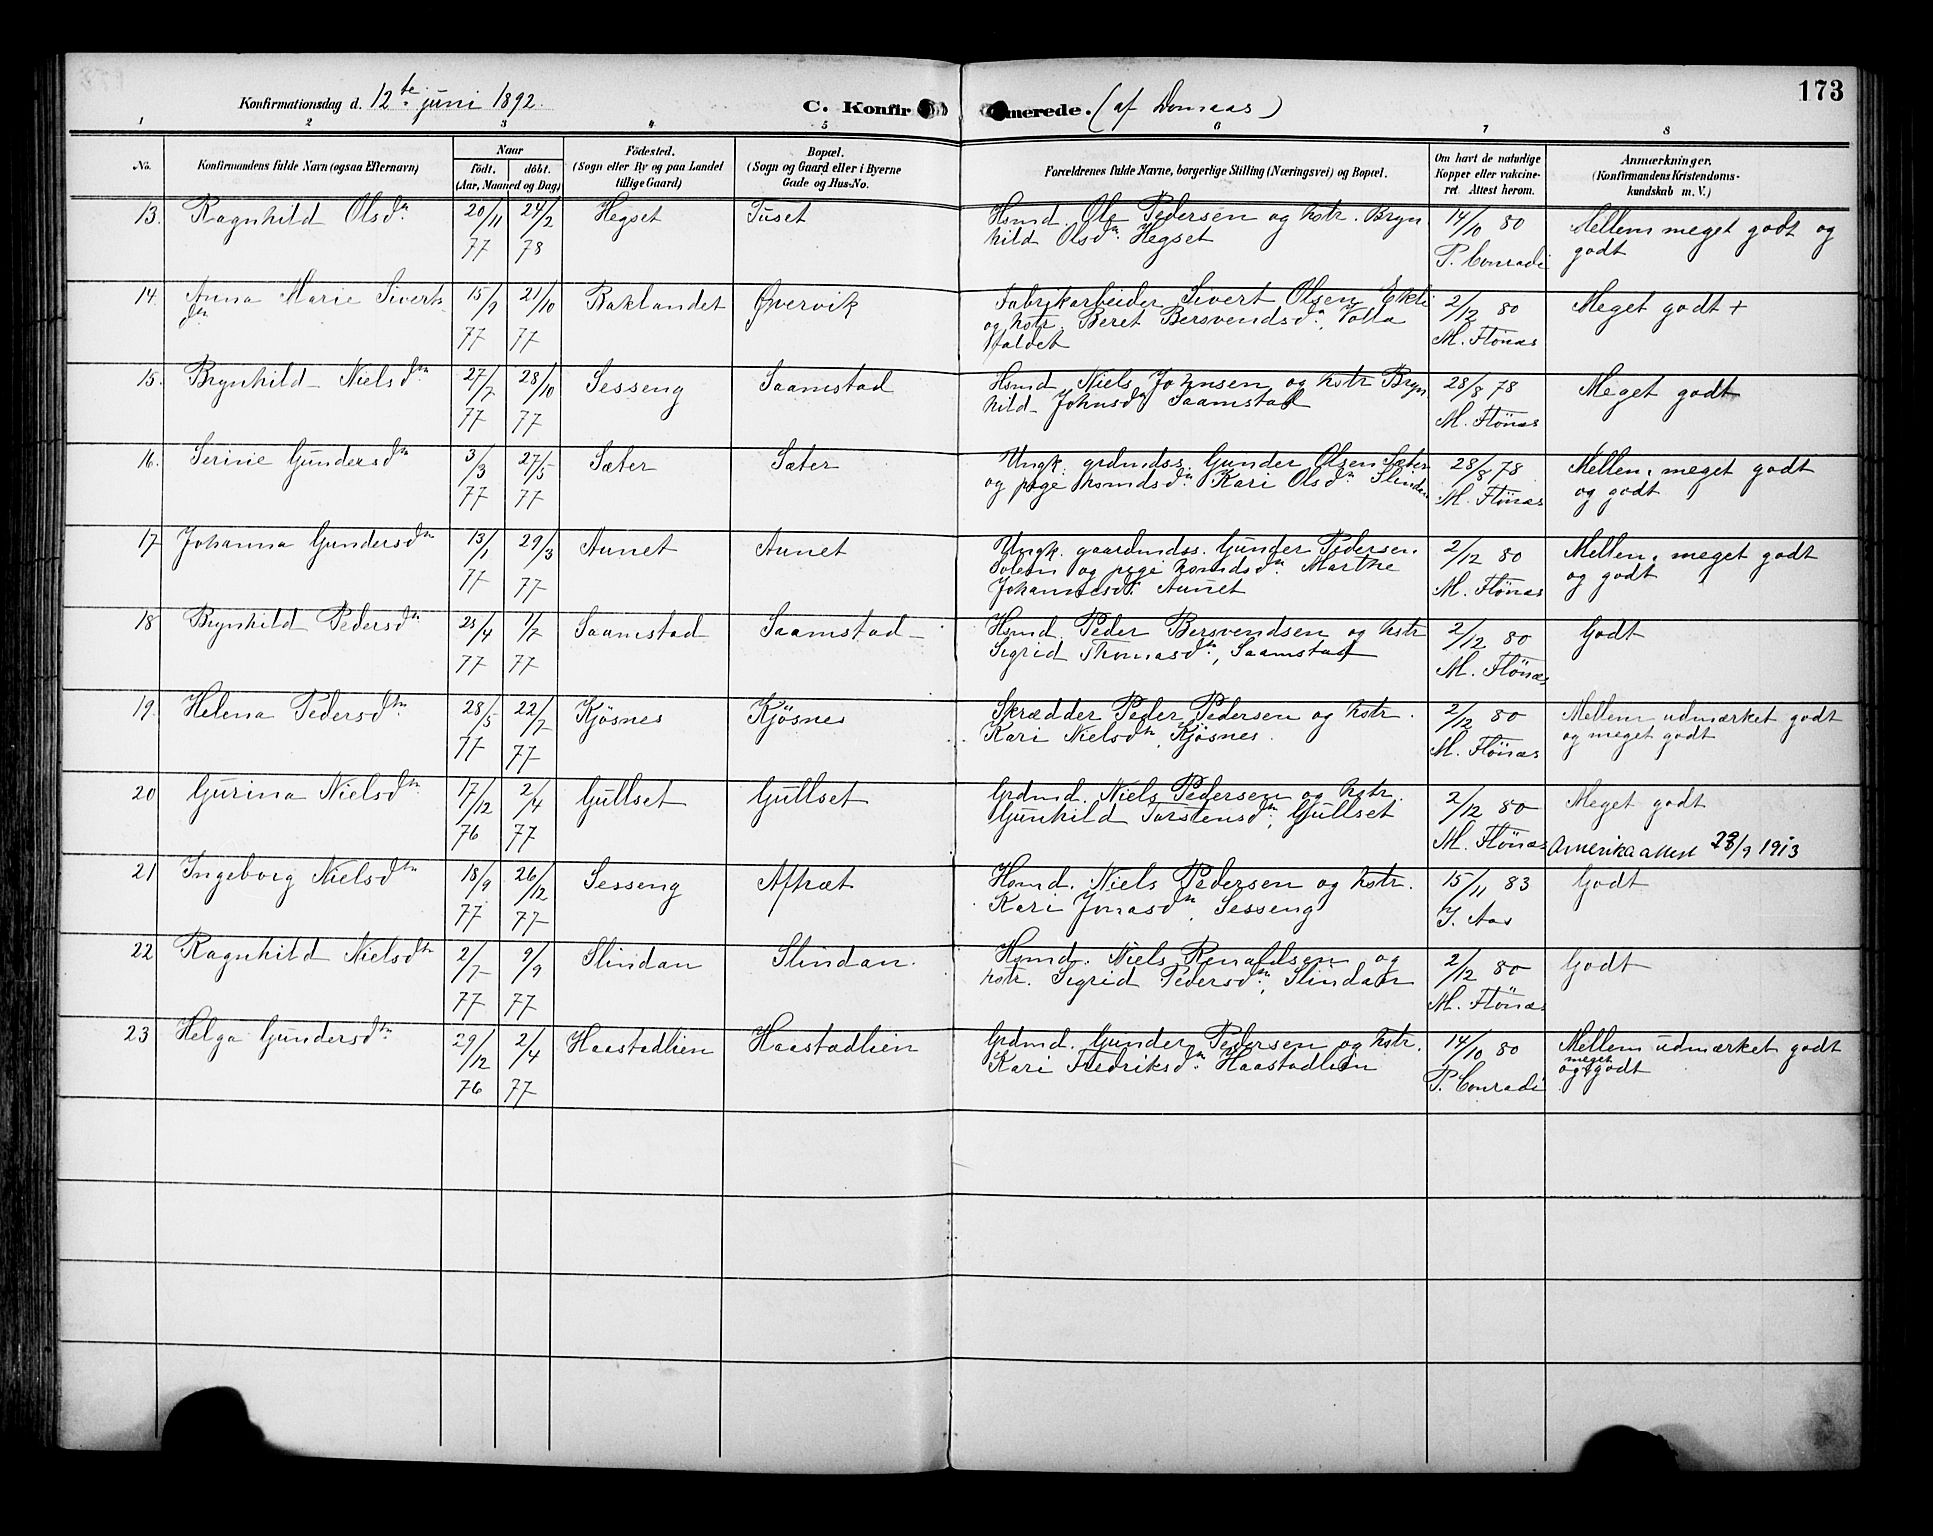 Konfirmationsdag d. 12te juni 1892. C. Konfirmerede. (af Domaas) 173
1 2 3 4 5 6 7 8
No. Konfirmandens fulde Navn (ogsaa Efternavn) Naar födt. döbt. (Aar, Maaned og Dag) Födested. (Sogn eller By og paa Landet tillige Gaard) Bopæl. (Sogn og Gaard eller i Byerne Gade og Hus-No. Forældrenes fulde Navne, borgerlige Stilling (Næringsvei) og Bopæl. Om havt de naturlige Kopper eller vaccineret. Attest herom. Anmærkninger. (Konfirmandens Kristendomskundskab m. V.)
13. Ragnhild Olsdn 20/11 77 24/2 78 Hegset Tuset Hsmd. Ole Pedersen og hstr. Bryn
hild Olsdn. Hegset 14/10 80 P. Conradi Mellem meget godt og
godt
14. Anna Marie Siverts
dn 15/9 77 21/10 77 Baklandet Øvervik Fabrikarbeider Sivert Olsen Ekli
og hstr. Beret Bersvendsdn, Volla
valdet 2/12 80 M. Flönæs Meget godt +
15. Brynhild Nielsdtr 27/7 77 28/10 77 Sesseng Saamstad Hsmd. Niels Johnsen og hstr Bryn
hild Johnsdn Saamstad 28/8 78 M. Flönæs Meget godt
16. Serine Gundersdtr 3/3 77 27/5 77 Sæter Sæter Ungk. grdmdss. Gunder Olsen Sæter
og pige hsmdsdn. Kari Olsdn Slindan 28/8 78 M. Flönæs Mellem meget godt
og godt
17 Johanna Gundersdtr 13/1 77 29/3 77 Aunet Aunet Ungk. gaardmdss. Gunder Pedersen
Solem og pige hsmdsdn. Marthe
Johannesd. Aunet 2/12 80 M. Flönæs Mellem meget godt
og godt
18 Brynhild Pedersdtr 25/4 77 1/7 77 Saamstad Saamstad Hsmd. Peder Bersvendsen og hstr
Sigrid Thomasdn, Saamstad 2/12 80 M. Flönæs Godt
19. Helena Pedersdtr. 28/5 77 22/7 77 Kjösnes Kjösnes Skrædder Peder Pedersen og hstr.
Kari Nielsdtr, Kjösnes. 2/12 80 M. Flönæs Mellem udmærket godt
og meget godt
20 Gurina Nielsdtr 17/12 76 2/4 77 Gullset Gullset Grdmd. Niels Pedersen og hstr.
Gunhild Torstensdn, Gullset 2/12 80 M. Flönæs Meget godt
Amerikaattest 23/9 1913
21 Ingeborg Nielsdtr 18/9 77 26/12 77 Sesseng Aftræt Hsmd. Niels Pedersen og hstr.
Kari Jonasdn, Sesseng 15/11 83 J. Aas Godt
22 Ragnhild Nielsdtr 2/7 77 9/9 77 Slindan Slindan. Hsmd. Niels Renaldsen og
hstr. Sigrid Pedersdn, Slindan 2/12 80 M. Flönæs Godt
23 Helga Gundersdtr. 29/12 76 2/4 77 Haastadlien Haastadlien Grdmd. Gunder Pedersen og hstr.
Kari Fredriksdn. Haastadlien 14/10 80 P. Conradi Mellem udmærket godt
og meget godt